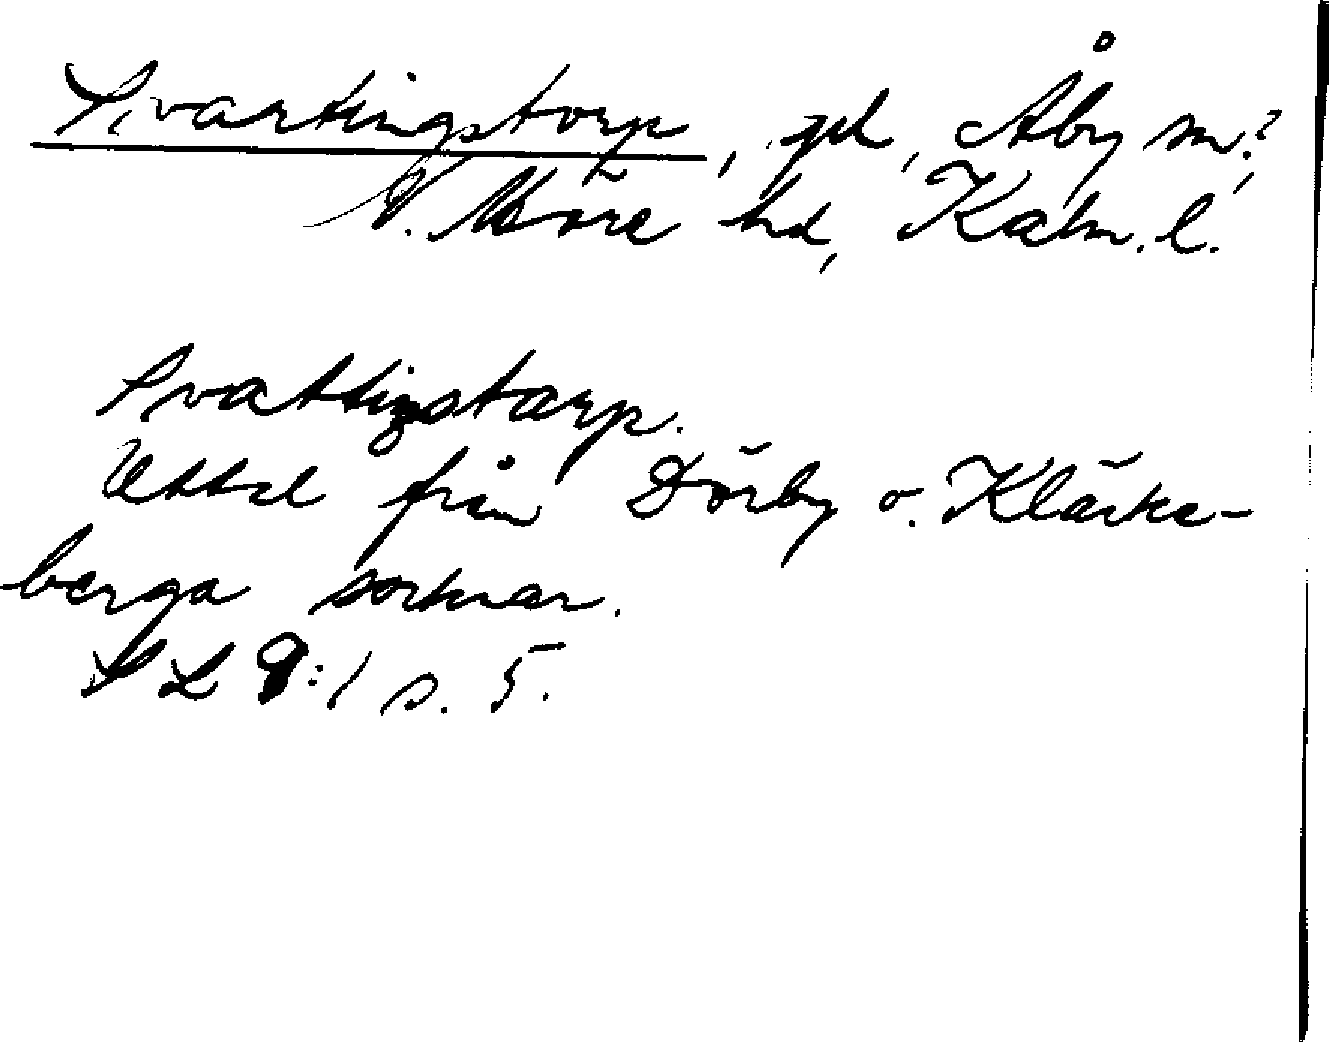 Svartingstorp, gd, Åby sn?,
N. Möre hd, Kalm. l.
Svattingstarp.
Uttal från Dörby o. Kläcke-
berga socknar.
SL 9:1 s. 5.